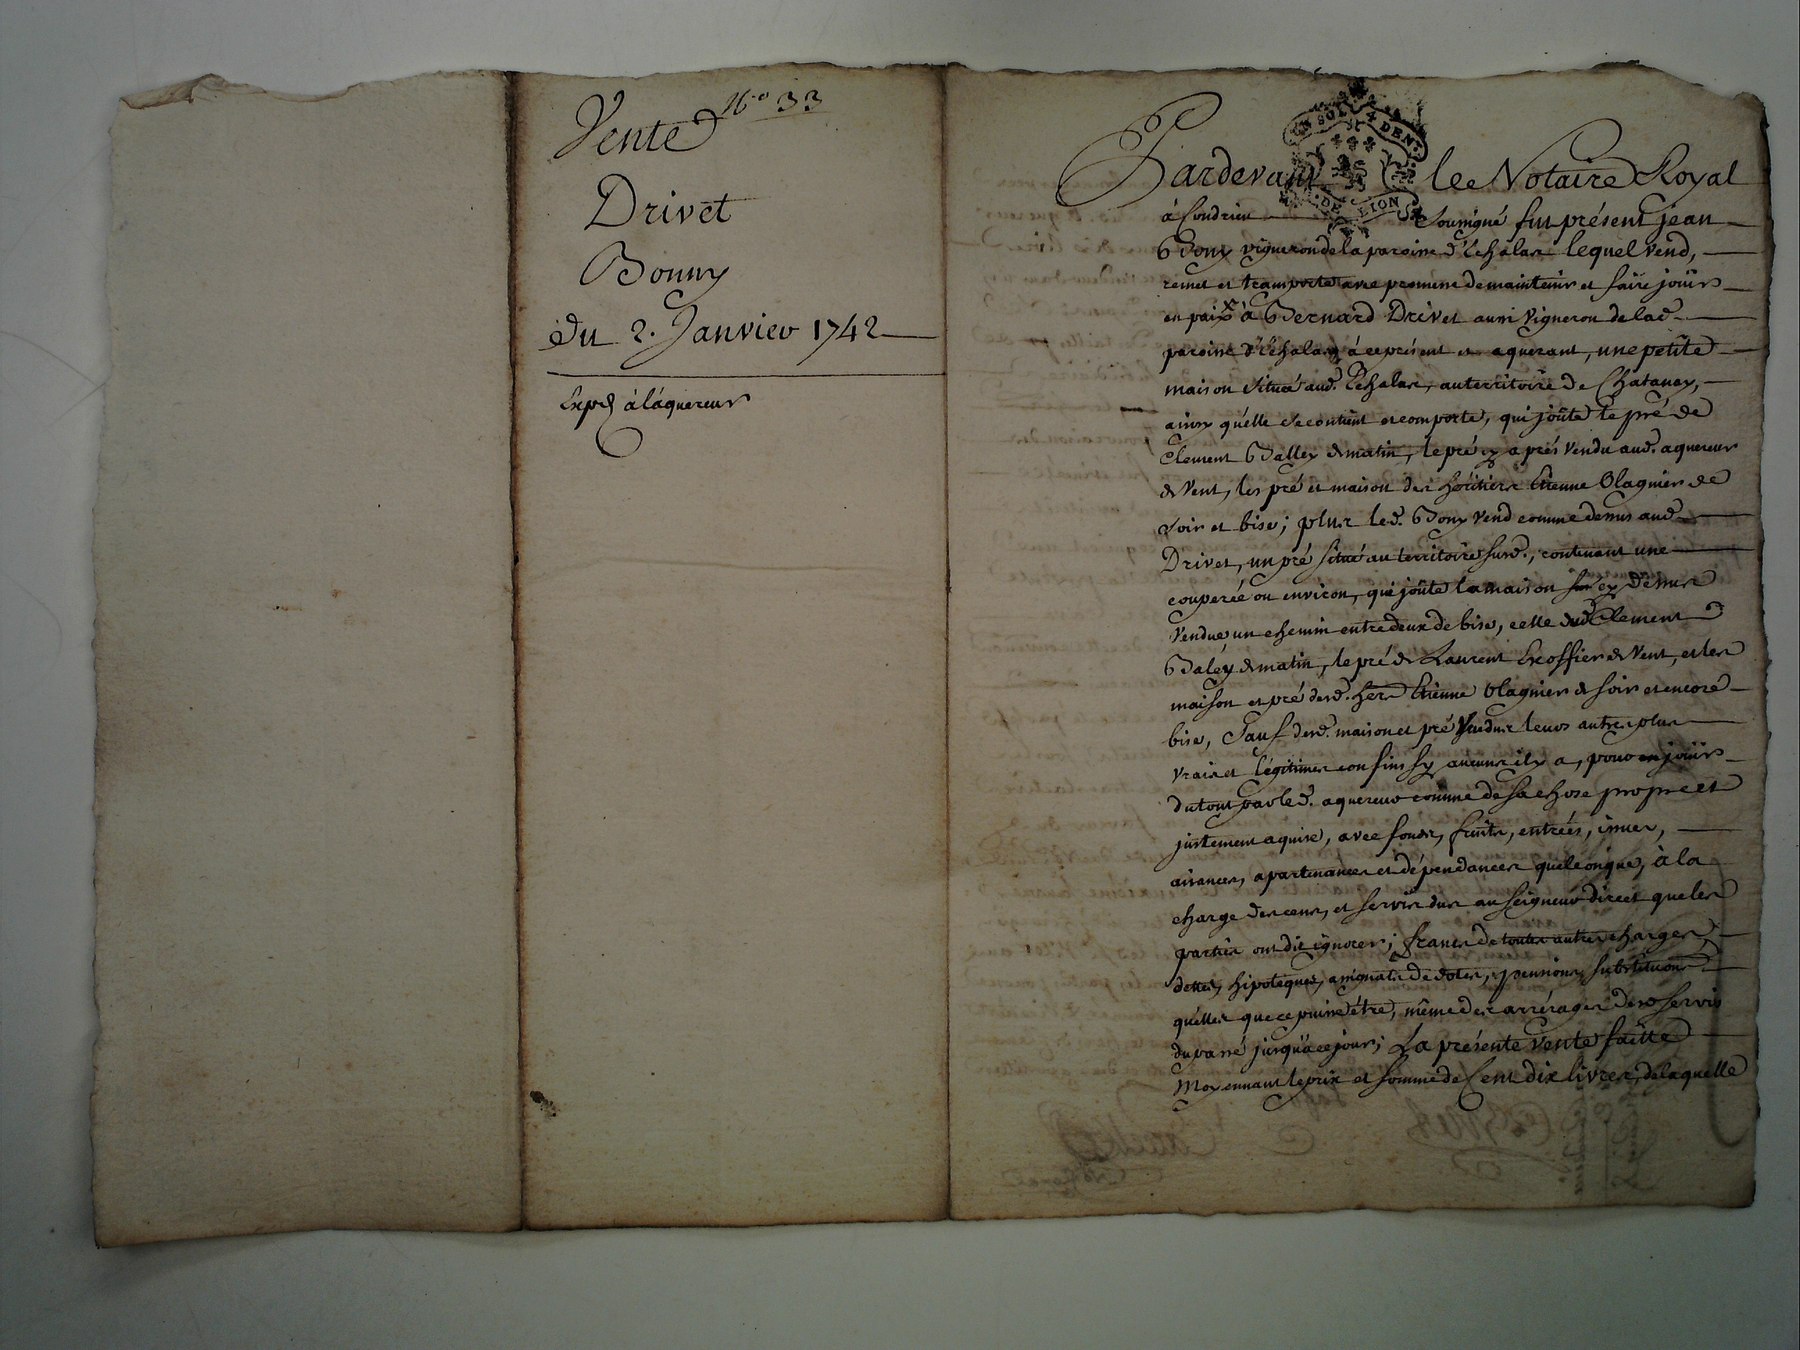 N.o 33
Vente
Drivet
Bonny
du 2. Janvier 1742
Exp.d à l'aquereur
SOL 4 DEN.
DE LION
Pardevant le Notaire Royal
à Condrieu Soussigné fut présent jean
Bony vigneron de la paroisse d'Echalas lequel vend,
remet et transporte avec promesse de maintenir et faire joüir
en paix à Bernard Drivet aussi vigneron de lad.
paroisse d'Echalas à ce présent et aquerant, une petite
maison située aud. Echalas, au territoire de Chatanay,
ainsy qu'elle se contient et comporte, qui joûte le pré de
Clement Balley de matin, le pré cy après vendu aud. aquereur
de vent, les pré et maison des héritiers Etienne Olagnier de
soir et bise; plus led. Bony vend comme dessus aud.
Drivet, un pré situé au territoire susd., contenant une
couperée ou environ, qui joûte la maison cy dessus
vendue un chemin entredeux de bise, celle dud. Clement
Baley de matin, le pré de Laurent Escoffier de vent, et les
maison et pré desd. hers Etienne Olagnier de soir et encore
bise, Sauf desd. maison et pré vendus leurs autres plus
vrais et légitimes confins sy aucuns il y a, pour en joüir
du tout par led. aquereur comme de sa chose propre et
justement aquise, avec fonds, fruits, entrées, issues,
aisances, apartenances et dépendances quelconque, à la
charge des cens, et servis dus au Seigneur direct que les
parties ont dit ignorer; francs de toutes autres charges,
dettes, hipoteques, assignats de dotes, pensions, substitutions
qu'elles que ce puisse être, même des arrérages desd. servis
du passé jusqu'à ce jour; La présente vente faitte
Moyennant le prix et somme de Cent dix livres, de laquelle